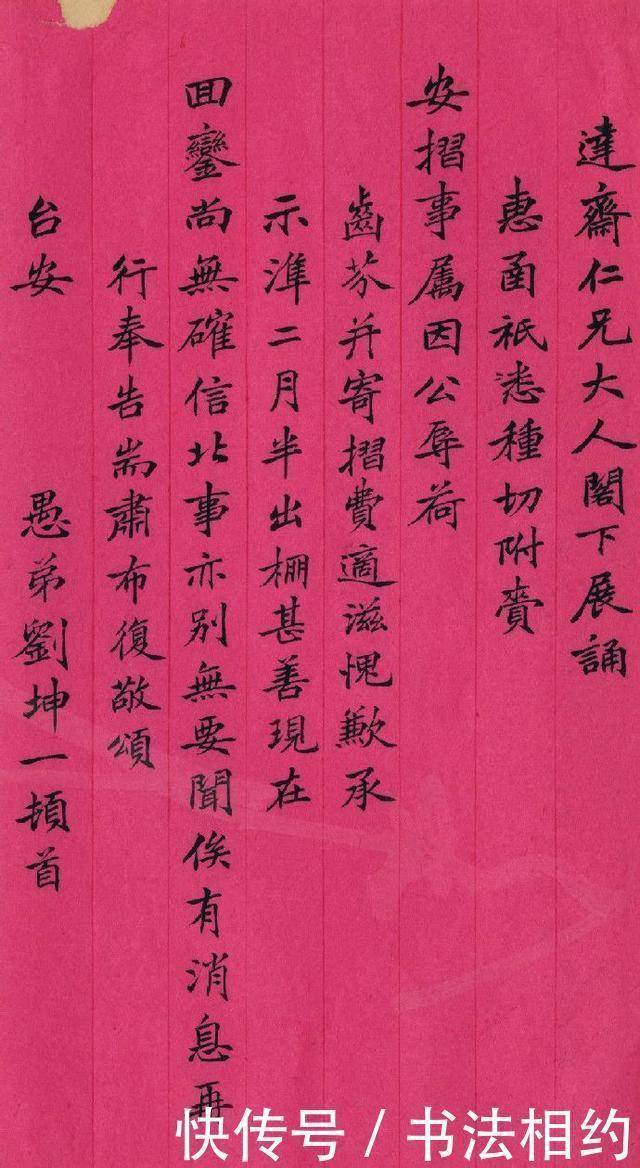 達齋仁兄大人閣下展誦
惠函祇悉種切附賫
安摺事属因公辱荷
齒芬并寄摺費適滋愧歉承
示準二月半出棚甚善現在
回鑾尚無確信北事亦别無要聞俟有消息再
行奉告耑肅布復敬頌
台安　愚弟劉坤一頓首
快传号 / 书法相约